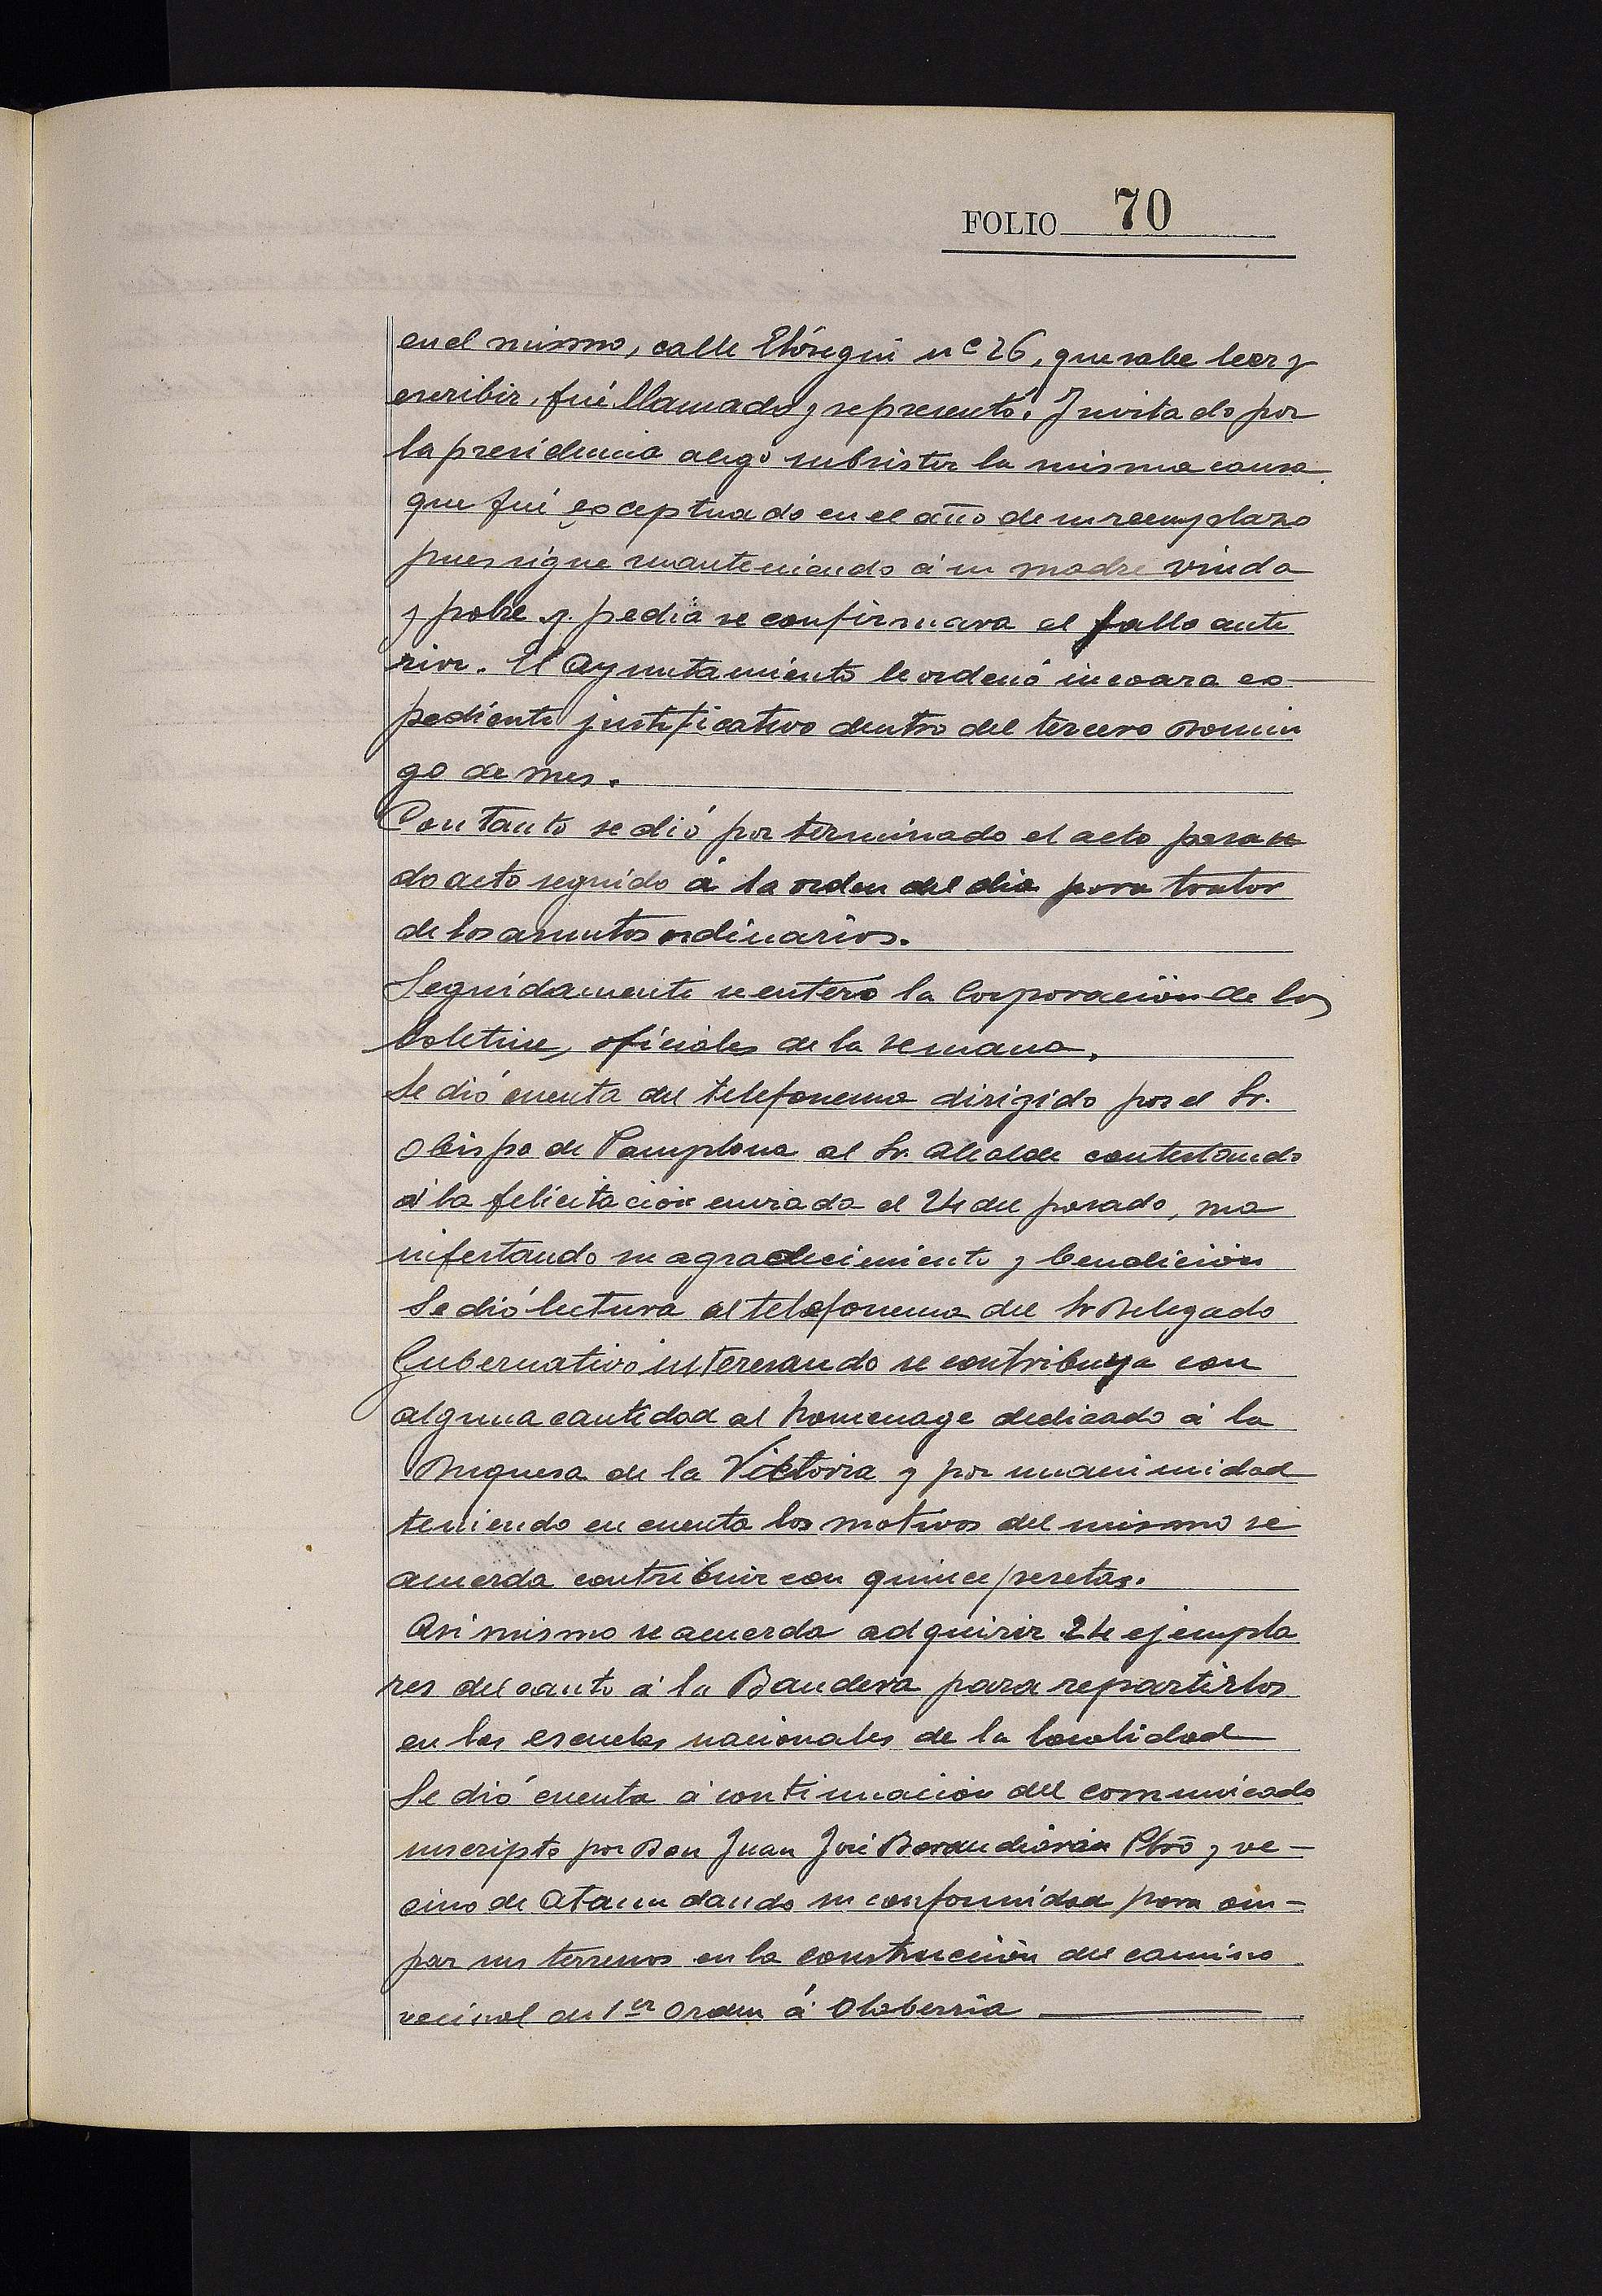 FOLIO 70
en el mismo, calle Elósegui nº 26, que sabe leer y
escribir, fué llamado y se presentó. Invitado por
la presidencia alegó subsistir la misma causa
que fué exceptuado en el año de su reemplazo
pues sigue manteniendo á su madre viuda
y pobre y pedia se confirmara el fallo ante
rior. El Ayuntamiento le ordenó incoara ex-
pediente justificativo dentro del tercero Domin
go de mes.
Con tanto se dió por terminado el acto pasan
do acto seguido á la orden del dia para tratar
de los asuntos ordinarios.
Seguidamente se enteró la Corporación de los
boletines oficiales de la semana.
Se dió cuenta del telefonema dirigido por el Sr.
Obispo de Pamplona al Sr. Alcalde contestando
á la felicitación enviada el 24 del pasado, ma
nifestando su agradecimiento y bendición
Se dió lectura al telefonema del Sr Delegado
Gubernativo interesando se contribuya con
alguna cantidad al homenage dedicado á la
Duquesa de la Victoria y por unanimidad
teniendo en cuenta los motivos del mismo se
acuerda contribuir con quince pesetas.
Asi mismo se acuerda adquirir 24 ejempla
res del canto á la Bandera para repartirlos
en las escuelas nacionales de la localidad
Se dió cuenta á continuación del comunicado
suscripto por Don Juan José Barandiarán Pbrō y ve-
cino de Ataun dando su conformidad para ocu-
par sus terrenos en la construcción del camino
vecinal de 1er Orden á Olaberria